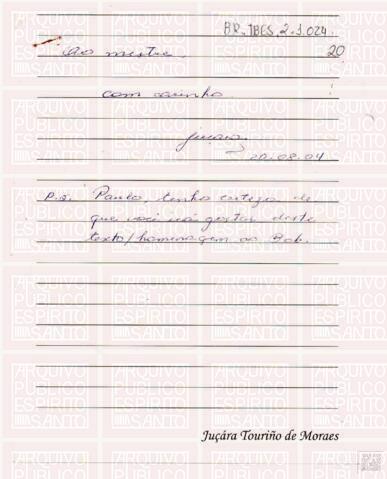 BR.IBES.2.1.024.
20
Ao mestre,
com carinho.
Juçára
20.08.04
P.S. Paulo, tenho certeza de
que você vai gostar deste
texto/homenagem ao Bob.
Juçára Touriño de Moraes
ARQUIVO PÚBLICO ESPÍRITO SANTO